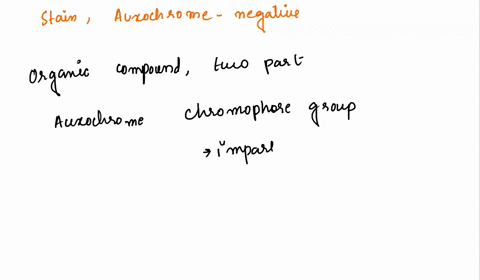 Stain, Auxochrome - negative
Organic compound, two part
Auxochrome chromophore group
→ impar